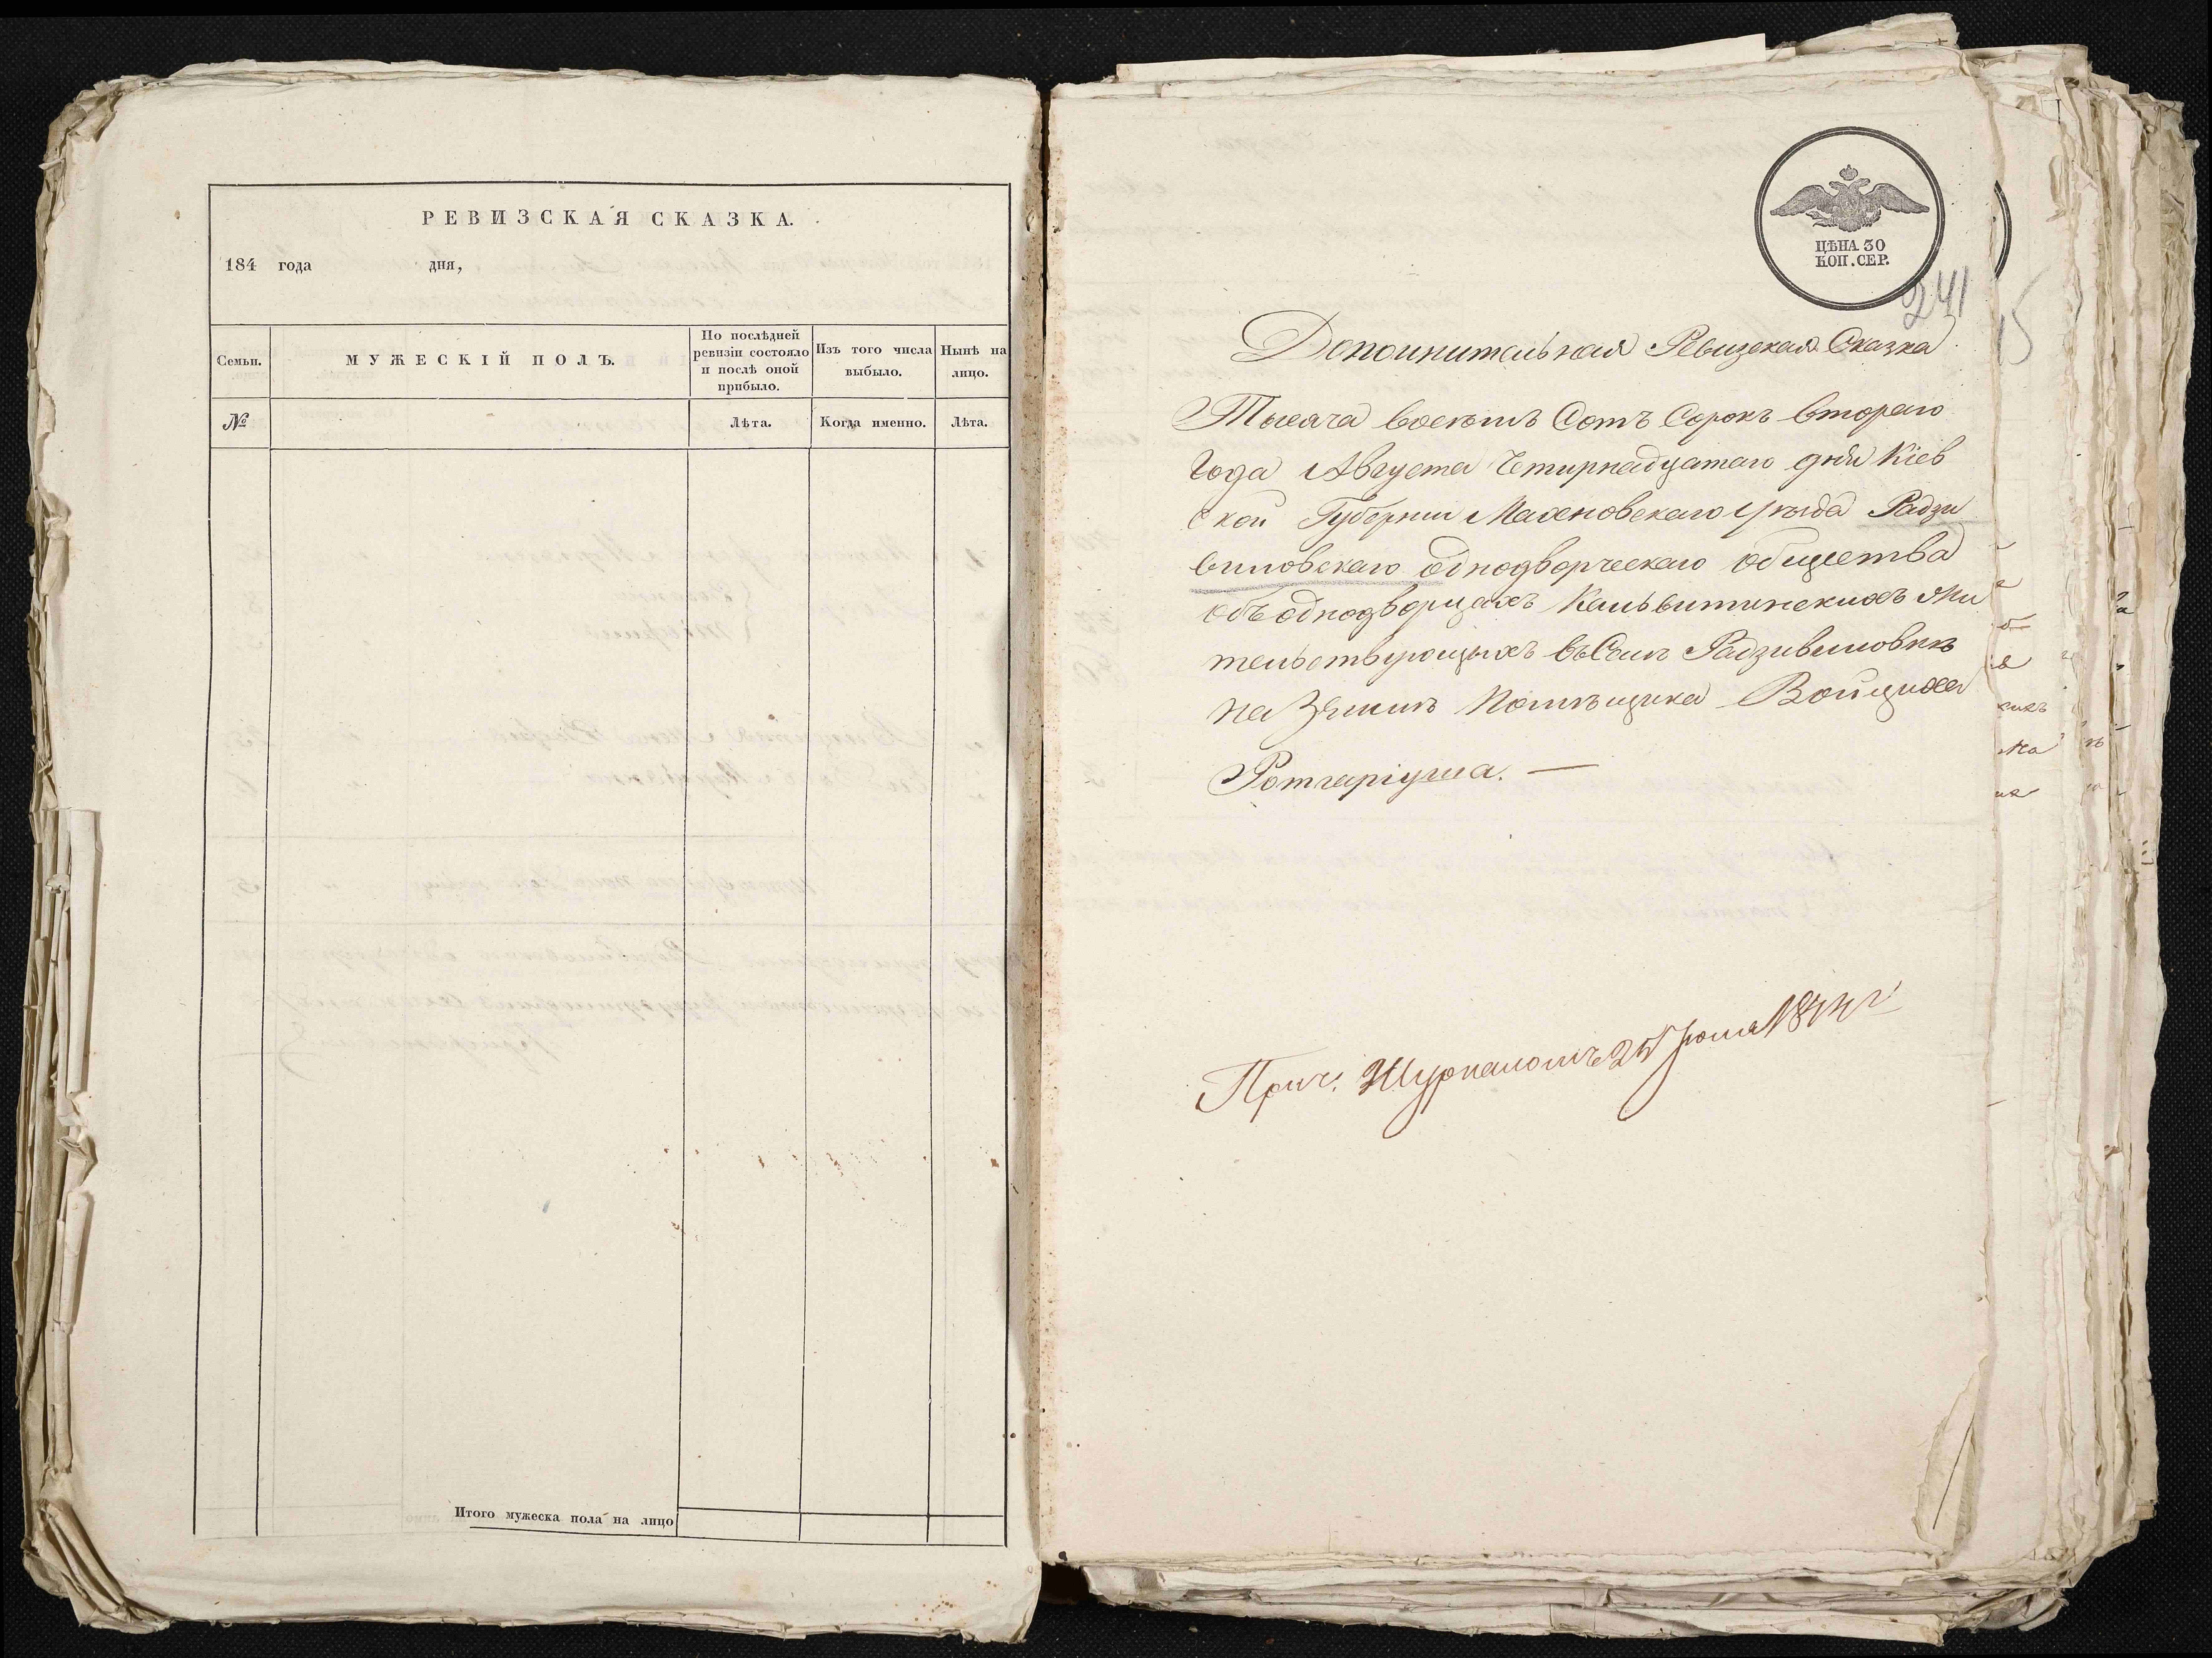 РЕВИЗСКАЯ СКАЗКА.
184 года дня,
Семьи.
МУЖЕСКІЙ ПОЛЪ.
По послѣдней ревизіи состояло и послѣ оной прибыло.
Изъ того числа выбыло.
Нынѣ на лицо.
№
Лѣта.
Когда именно.
Лѣта.
Итого мужеска пола на лицо
ЦѢНА 30
КОП. СЕР.
241
15
Дополнительная Ревизская Сказка
Тысяча восемь Сотъ Сорокъ втораго
Года Августа Четирнадцатаго дня Кіев
ской Губерніи Махновскаго уѣзда Радзи
виловскаго однодворческаго общества
объ однодворцахъ Кальвитинскихъ жи
тельствующихъ въ Селѣ Радзивиловкѣ
на Землѣ Помѣщика Войциха
Ротгаріуша. —
При Журналомъ 25 Іюля 1844 г